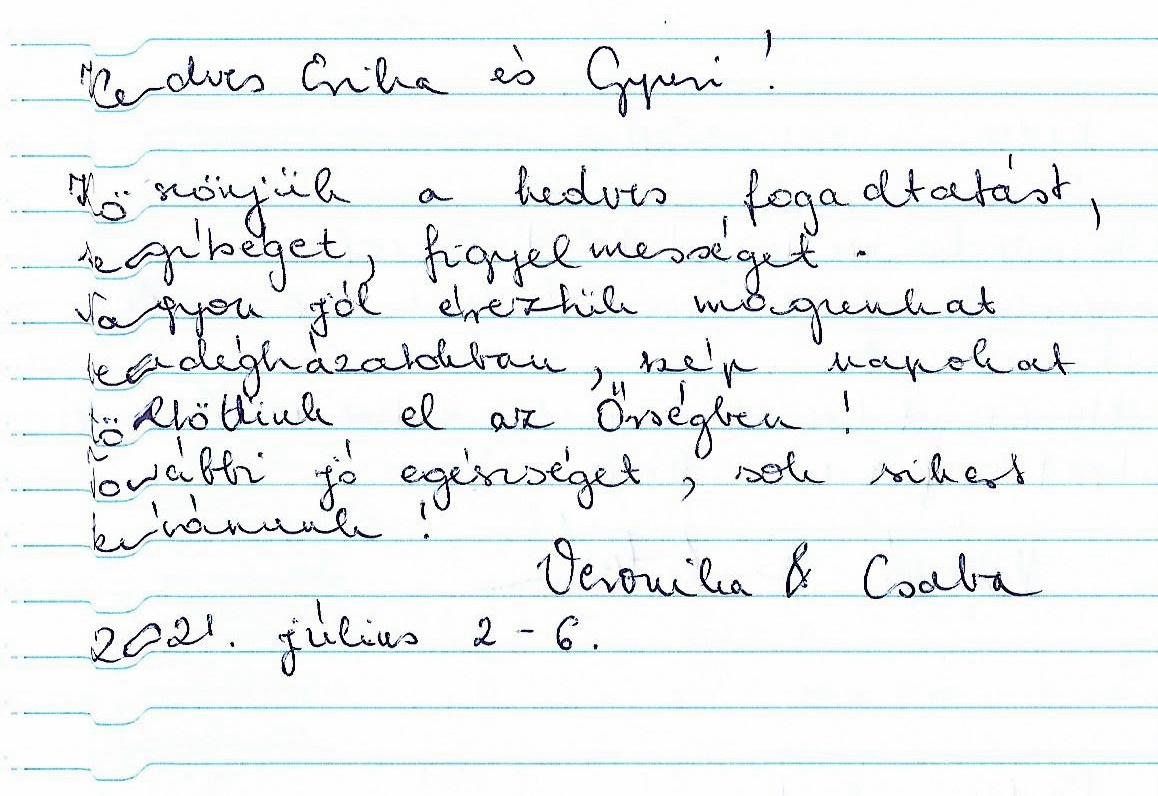 Kedves Erika és Gyuri!
Köszönjük a kedves fogadtatást,
segítséget, figyelmességet.
Nagyon jól éreztük magunkat
vendégházatokban, szép napokat
töltöttünk el az Őrségben!
További jó egészséget, sok sikert
kívánunk!
Veronika & Csaba
2021. július 2-6.